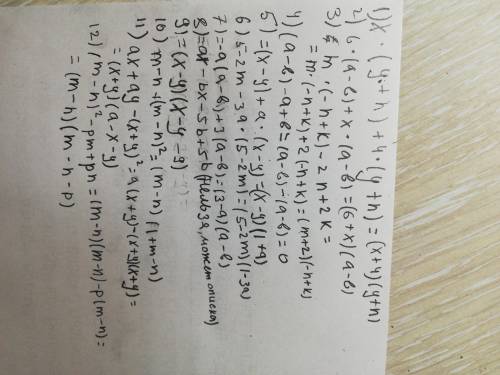 1) x · (y+h) + 4 · (y+h) = (x+4)(y+h)
2) 6 · (a-b) + x · (a-b) = (6+x)(a-b)
3) m · (-n+k) - 2n + 2k =
= m · (-n+k) + 2(-n+k) = (m+2)(-n+k)
4) (a-b) - a + b = (a-b) - (a-b) = 0
5) = (x-y) + a · (x-y) = (x-y)(1+a)
6) 5-2m - 3a · (5-2m) = (5-2m)(1-3a)
7) = -a(a-b) + 3(a-b) = (3-a)(a-b)
8) = ax - bx - 5b + 5b (нельзя, может описка)
9) = (x-y)(x-y-9)
10) m-n + (m-n)² = (m-n)(1+m-n)
11) ax + ay - (x+y)² = a(x+y) - (x+y)(x+y) =
= (x+y)(a-x-y)
12) (m-n)² - pm + pn = (m-n)(m-n) - p(m-n) =
= (m-n)(m-n-p)